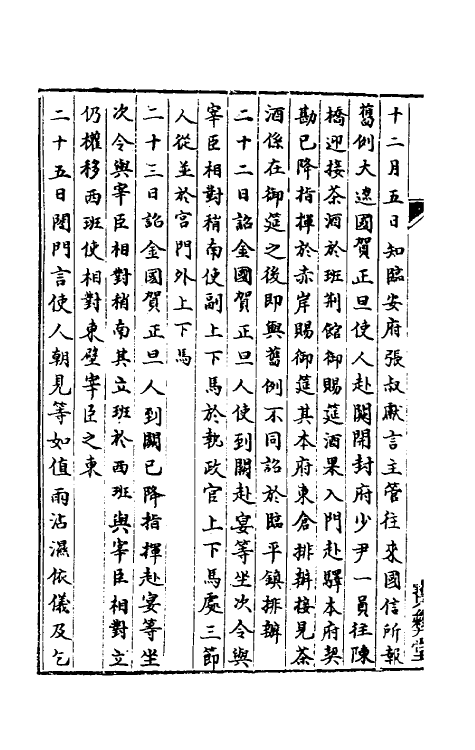 十二月五日知臨安府張叔獻言主管往來國信所報
舊例大遼國賀正旦使人赴闕開封府少尹一員往陳
橋迎接茶酒於班荆館御賜筵酒果入門赴驛本府契
勘已降指揮於赤岸賜御筵其本府東倉排辦接見茶
酒係在御筵之後即與舊例不同詔於臨平鎮排辦
二十二日詔金國賀正旦人使到闕赴宴等坐次令與
宰臣相對稍南使副上下馬於執政官上下馬處三節
人從並於宮門外上下馬
二十三日詔金國賀正旦人到闕已降指揮赴宴等坐
次令與宰臣相對稍南其立班於西班與宰臣相對立
仍權移西班使相對東壁宰臣之東
二十五日閤門言使人朝見等如值雨沾濕依儀及乞